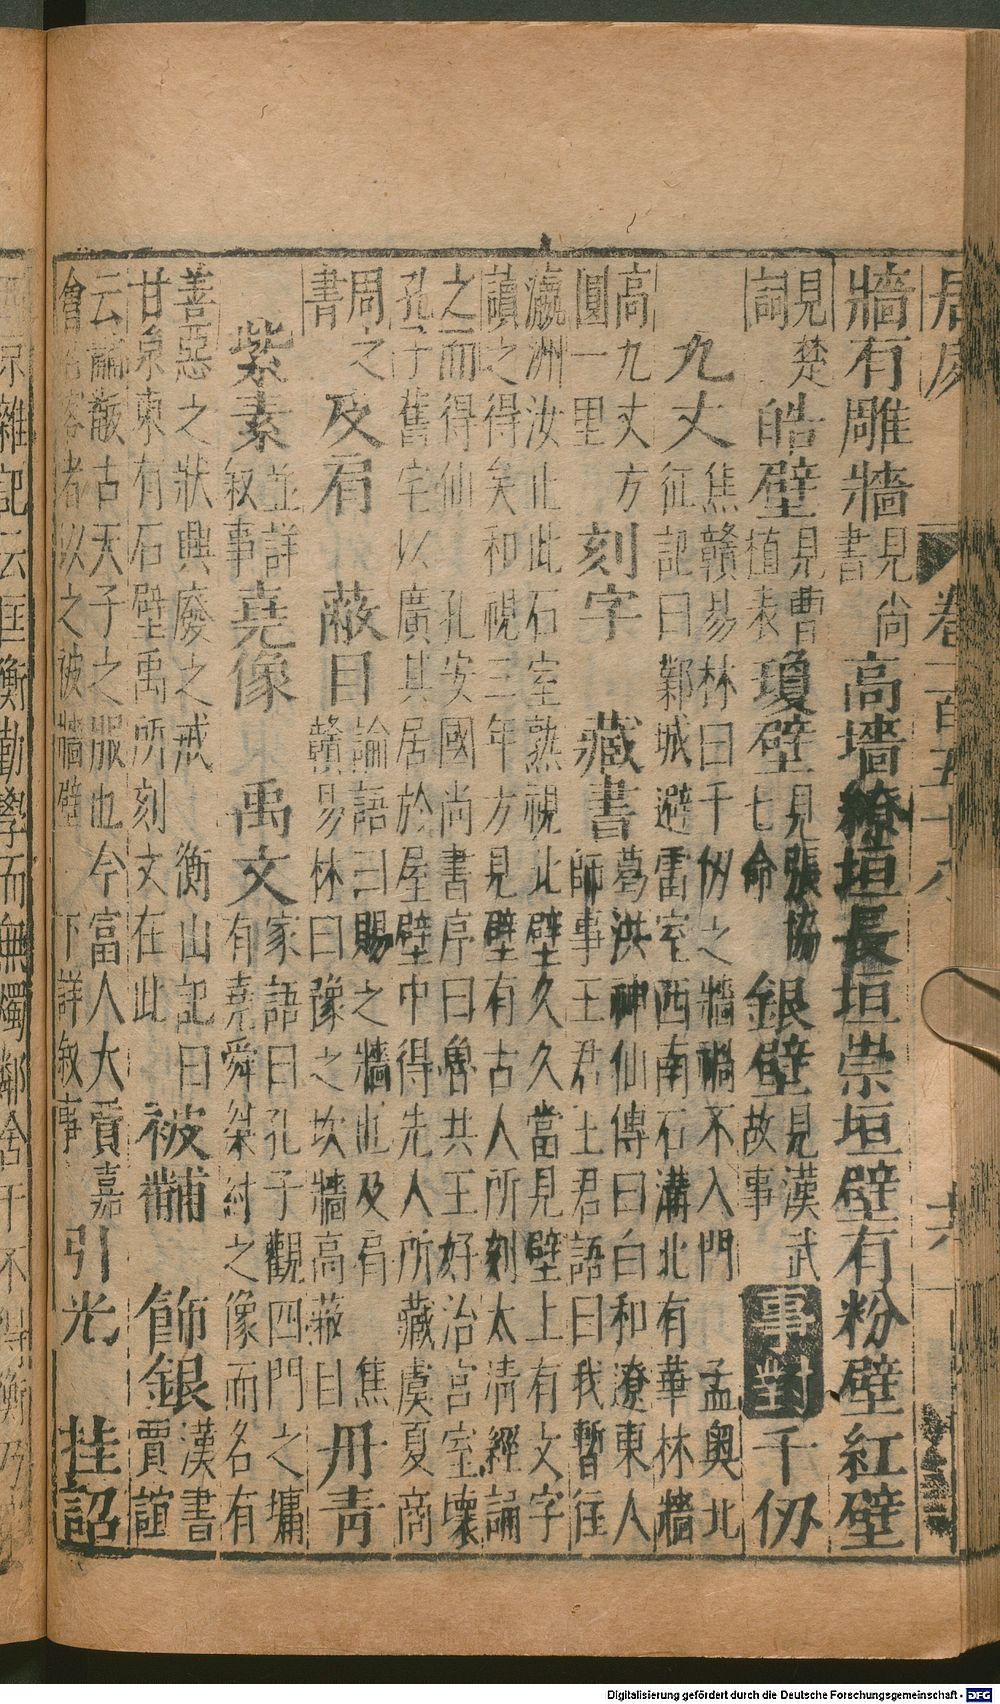 居處 卷一百五十
牆有雕牆見尚書高墻繚垣長垣崇垣壁有粉壁紅壁
見楚詞皓壁見曹植表瓊壁見張協七命銀壁見漢武故事事對千仞
九丈焦贛易林曰千仞之牆禍不入門 孟奥北征記曰鄴城避雷室西南石溝北有華林牆
高九丈方圓一里刻字 藏書葛洪神仙傳曰白和遼東人師事王君王君語曰我暫往
瀛洲汝止此石室熟視北壁久久當見壁上有文字讀之得矣和視三年方見壁有古人所刻太清經誦
之而得仙 孔安國尚書序曰魯共王好治宮室壞孔子舊宅以廣其居於屋壁中得先人所藏虞夏商
周之書及肩 蔽目論語曰賜之牆也及肩 焦贛易林曰豫之坎牆高蔽目丹青
紫素並詳叙事堯像 禹文家語曰孔子觀四門之墉有堯舜桀紂之像而名有
善惡之狀興廢之戒 衡山記曰甘泉東有石壁禹所刻文在此被黼 飾銀漢書賈誼
云黼黻古天子之服也今富人大賈嘉會召客者以之被牆壁 下詳叙事引光 挂詔
京雜記云匡衡勤學而無燭鄰舍
Digitalisierung gefördert durch die Deutsche Forschungsgemeinschaft - DFG